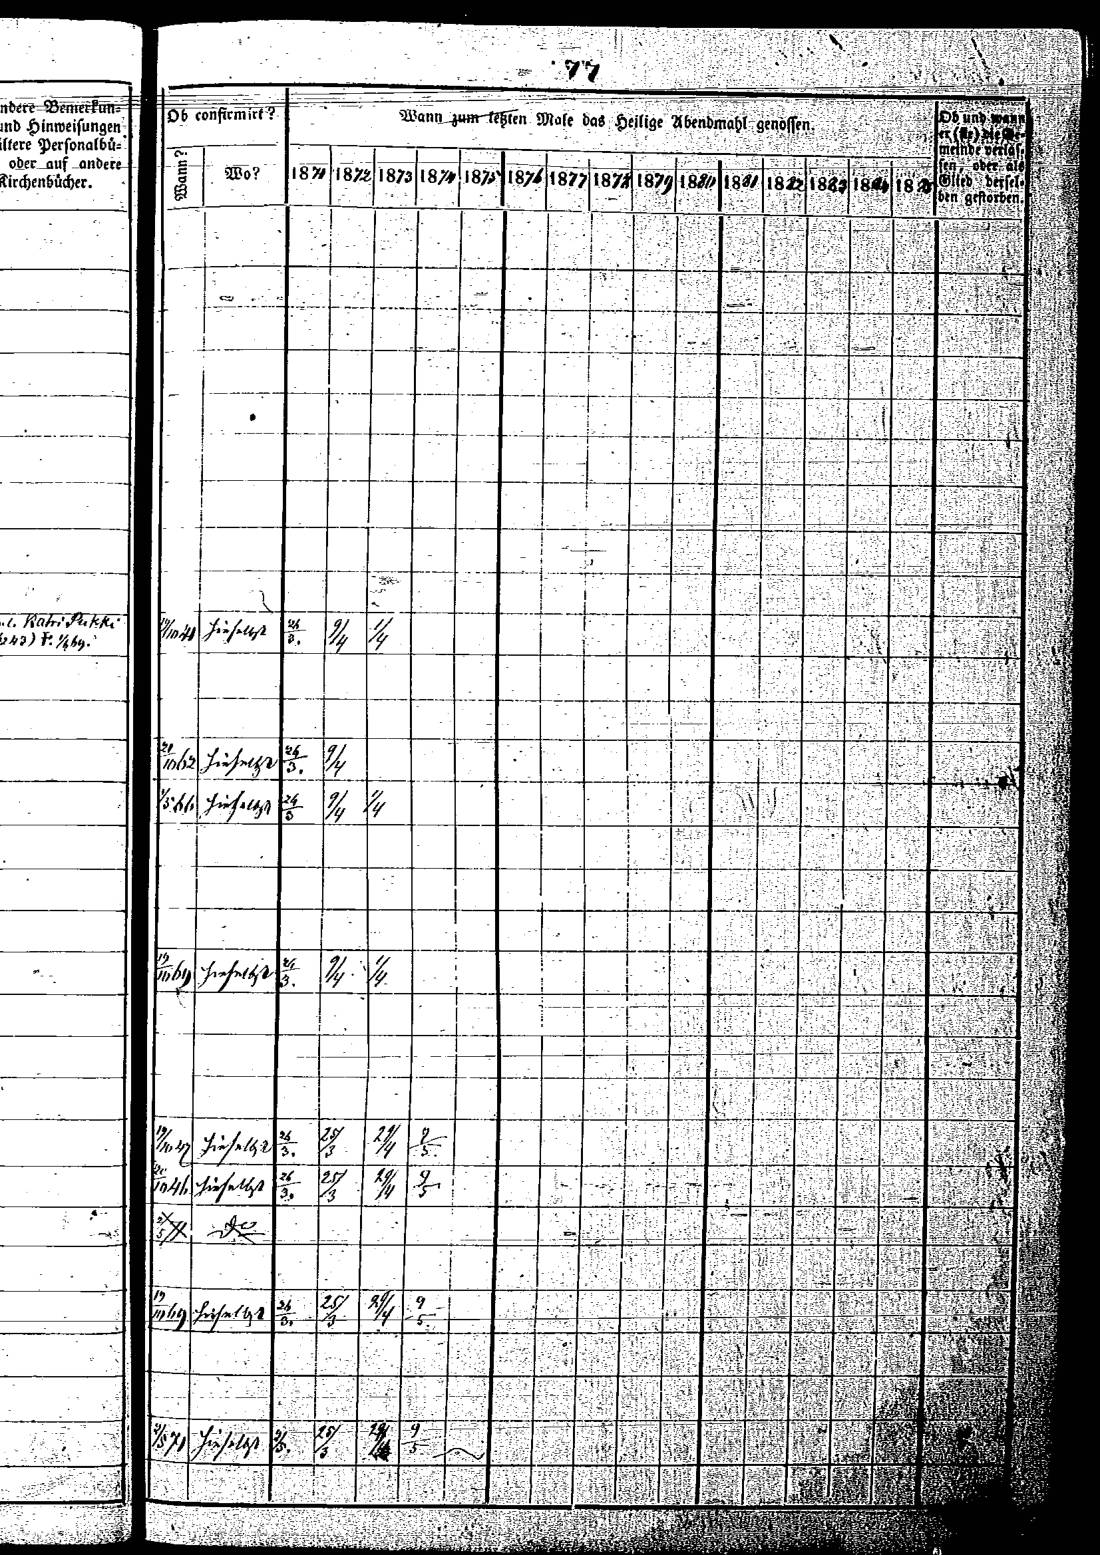 77
ndere Bemerkun-
und Hinweisungen
ältere Personalbü-
oder auf andere
Kirchenbücher.
Ob confirmirt?
Wann?
Wo?
Wann zum letzten Male das Heilige Abendmahl genossen.
1871 1872 1873 1874 1875 1876 1877 1878 1879 1880 1881 1882 1883 1884 1885
Ob und wann
er (sie) die Ge-
meinde verlas-
sen oder als
Glied dersel-
ben gestorben.
Katri Pukki
hieselbst 26/3. 9/4 1/4
20/10 62 hieselbst 26/3. 9/4
1/5 66 hieselbst 26/3 9/4 1/4
19/10 69 hieselbst 26/3. 9/4 1/4
19/10 47 hieselbst 26/3. 25/3 29/4 9/5.
20/10 46 hieselbst 26/3. 25/3 29/4 9/5
do
19/10 69 hieselbst 26/3. 25/3 29/4 9/5.
2/5 71 hieselbst 2/5. 25/3 29/4 9/5